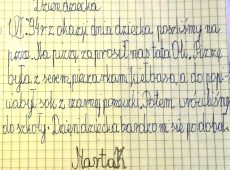 Dzień dziecka
1.VI. 94r z okazji dnia dziecka poszliśmy na
pizzę. Na pizzę zaprosił nas tata Oli. Pizza
była z serem pieczarkami kiełbasą, a do pop-
ował sok z czarnej porzeczki. Potem wróciliśmy
do szkoły. Dzień dziecka bardzo mi się podobał.
Marta K